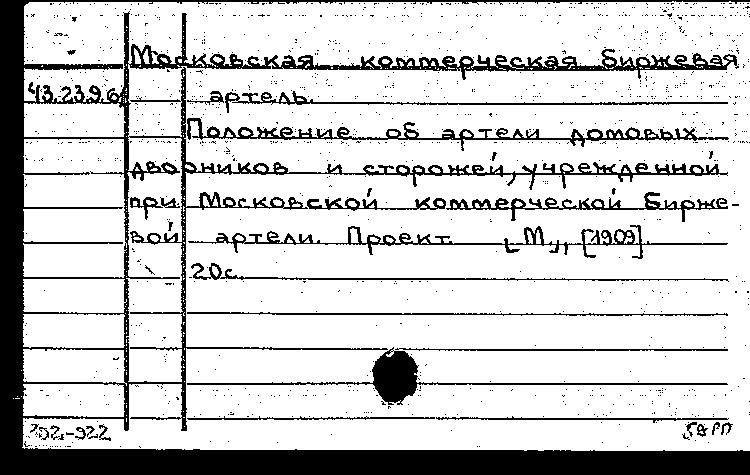 Московская коммерческая Биржевая
43.23.9.6
артель.
Положение об артели домовых
дворников и сторожей, учрежденной
при Московской коммерческой Бирже-
вой артели. Проект. [М.], [1909].
20с.
292-922